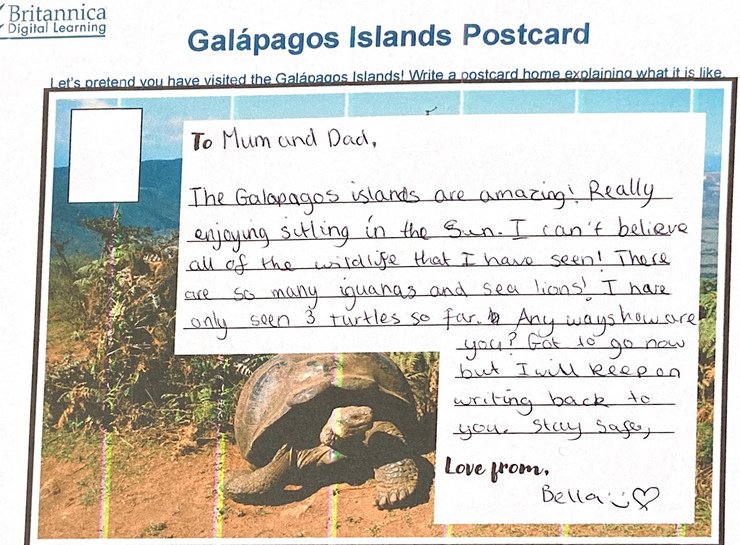 Britannica
Digital Learning
Galápagos Islands Postcard
Let's pretend you have visited the Galápagos Islands! Write a postcard home explaining what it is like.
To Mum and Dad,
The Galapagos islands are amazing! Really
enjoying sitting in the Sun. I can't believe
all of the wildlife that I have seen! There
are so many iguanas and sea lions! I have
only seen 3 turtles so far. Any ways how are
you? Got to go now
but I will keep on
writing back to
you. Stay safe,
Love from,
Bella